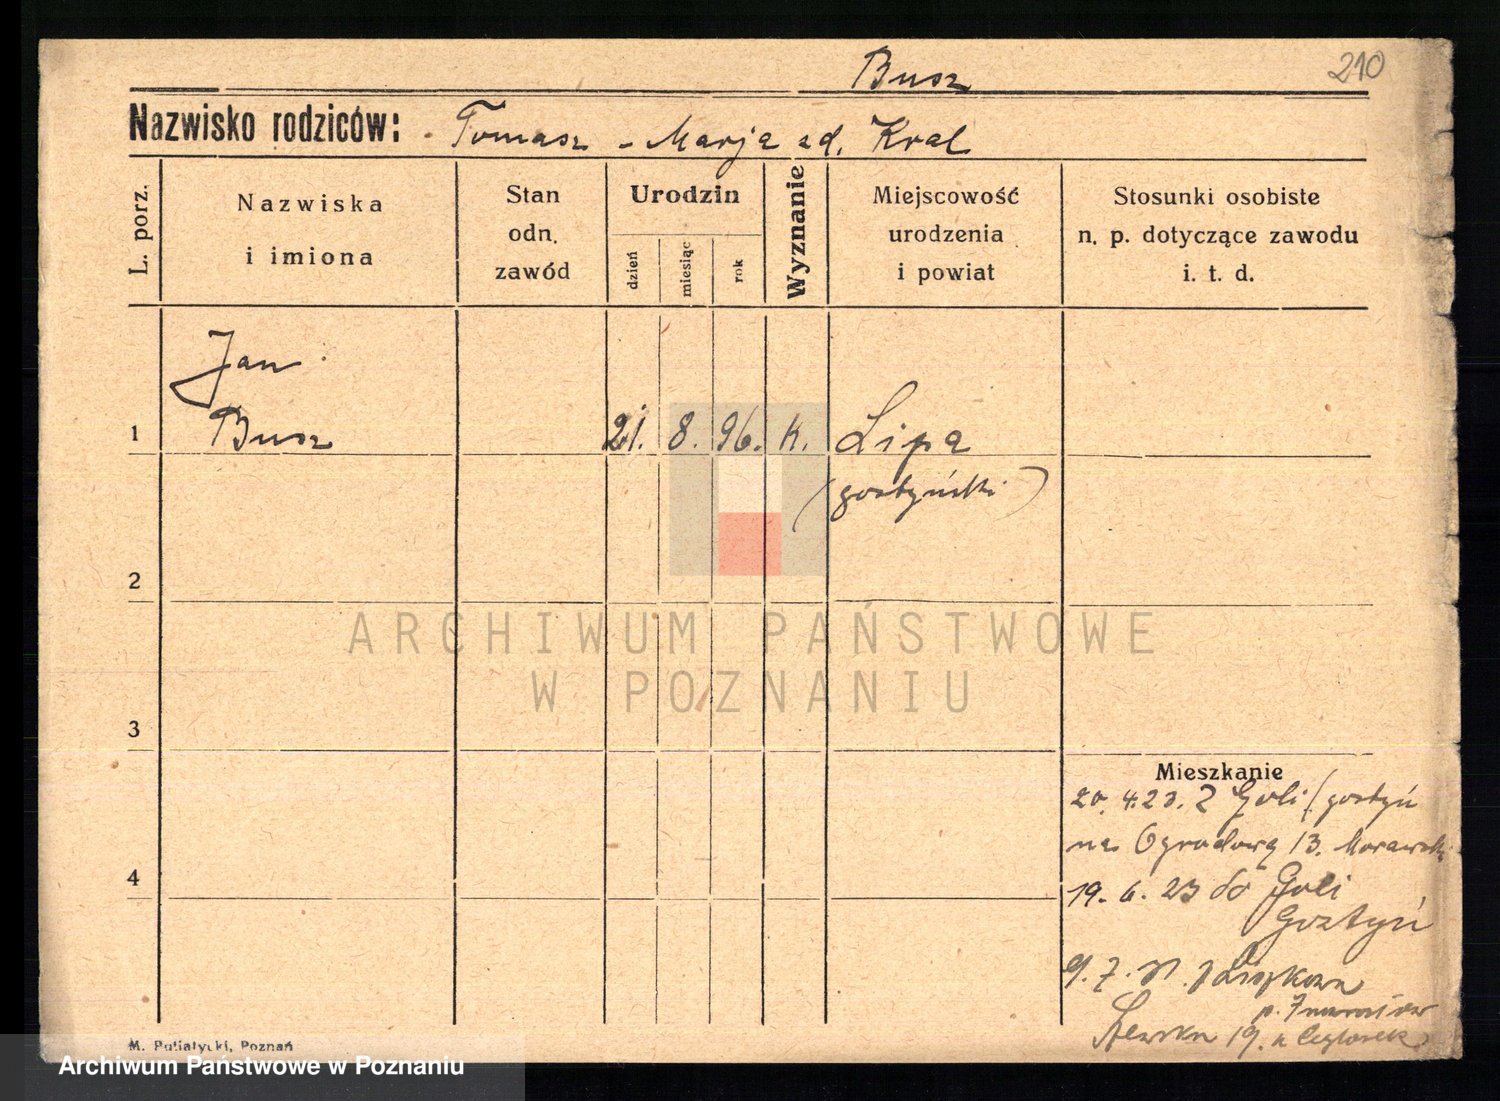 Busz
210
Nazwisko rodziców: Tomasz - Marja zd. Kral
L. porz.
Nazwiska
i imiona
Stan
odn.
zawód
Urodzin
dzień
miesiąc
rok
Wyznanie
Miejscowość
urodzenia
i powiat
Stosunki osobiste
n. p. dotyczące zawodu
i. t. d.
Jan
1 Busz 21. 8. 96. k. Lipa
(gostyński)
2
3
Mieszkanie
20. 4. 23. Z Goli (gostyń
na Ogrodową 13. Morawski
4
19. 6. 23 do Goli
Gostyń
9. 7.
19.
M. Putiatycki, Poznań
ARCHIWUM PAŃSTWOWE
W POZNANIU
Archiwum Państwowe w Poznaniu